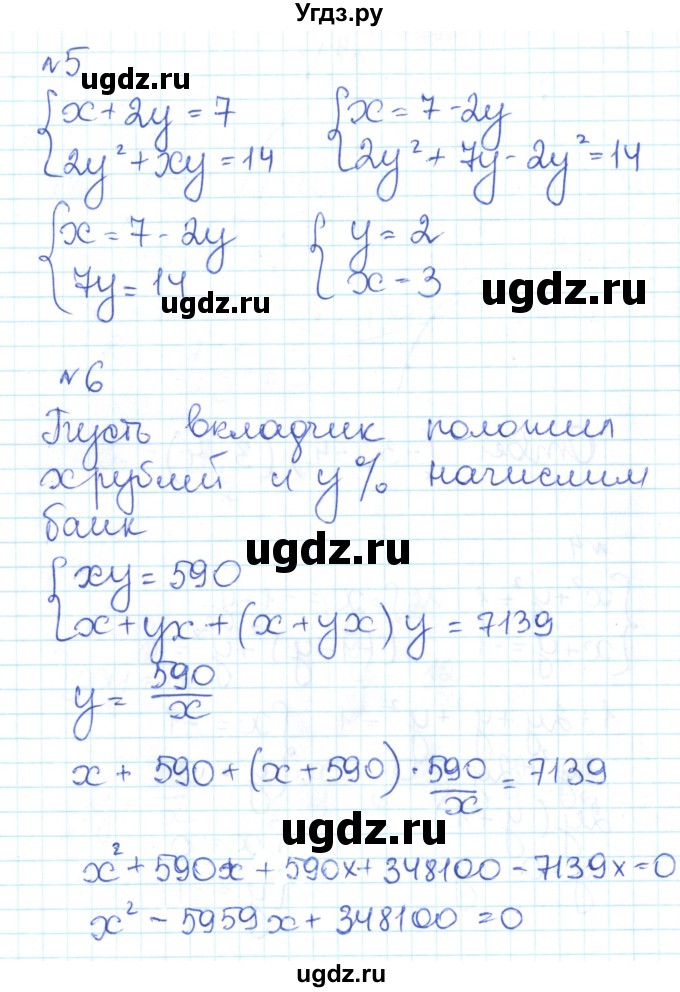 Угдз.ру
№5
ugdz.ru
{ x + 2y = 7    { x = 7 - 2y
{ 2y² + xy = 14    { 2y² + 7y - 2y² = 14
{ x = 7 - 2y    { y = 2
{ 7y = 14    { x - 3
ugdz.ru    ugdz.ru
№6
Пусть вкладчик положил
x рублей и y% начислим
банк
ugdz.ru
{ xy = 590
{ x + yx + (x + yx) y = 7139
y = 590/x
ugdz.ru
x + 590 + (x + 590) · 590/x = 7139
ugdz.ru
x² + 590x + 590x + 348100 - 7139x = 0
x² - 5959x + 348100 = 0
ugdz.ru